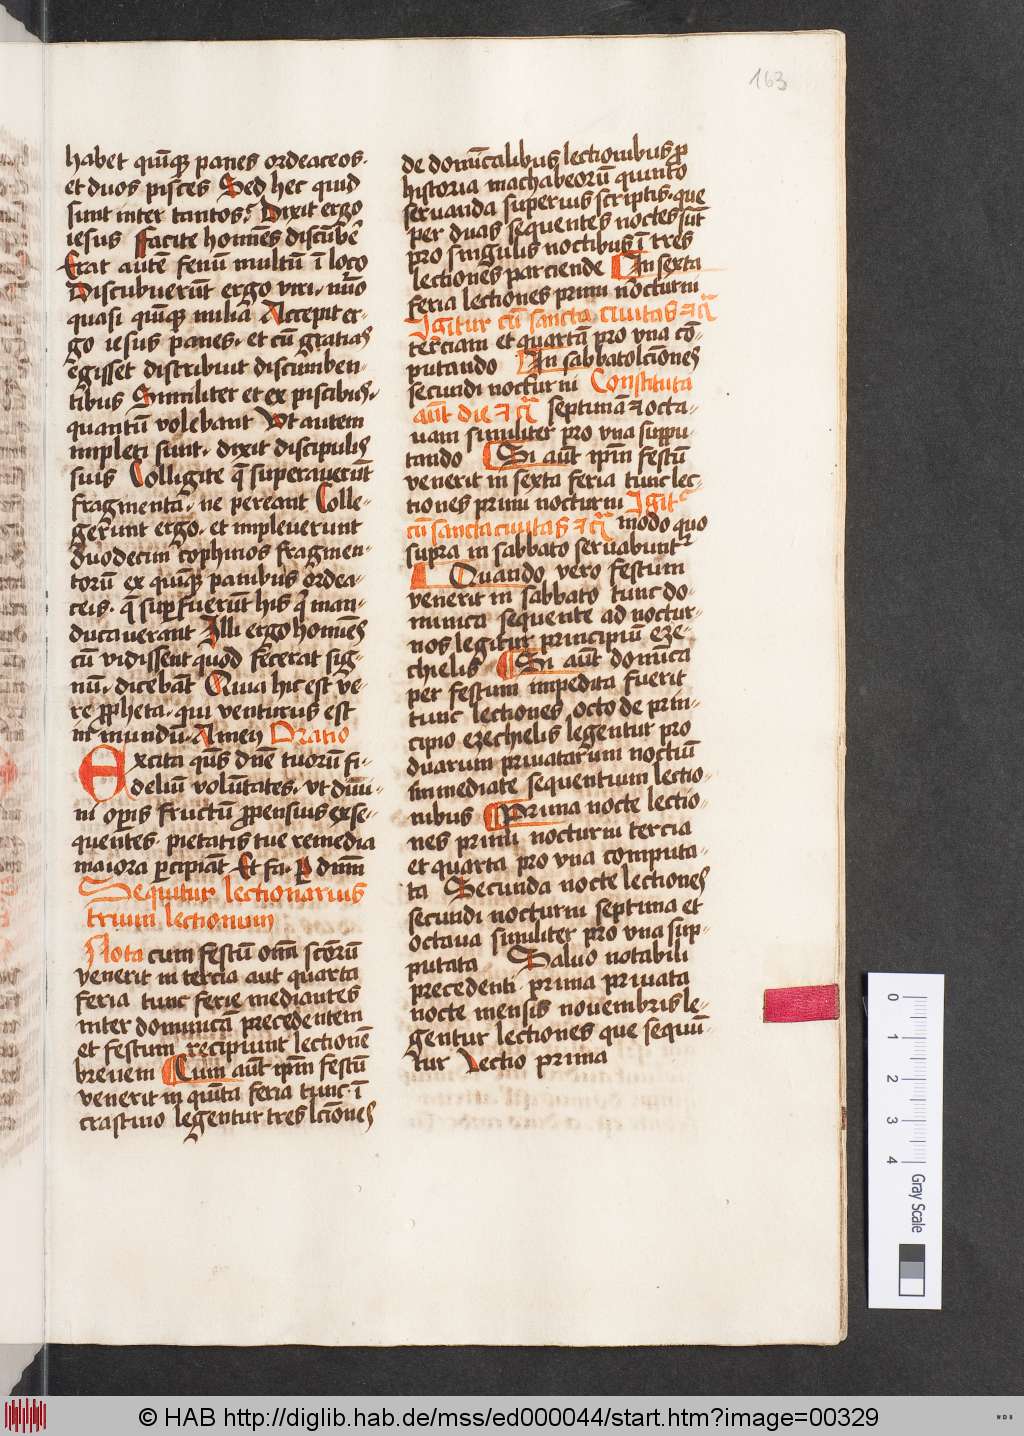 163
habet quīqꝫ panes ordeaceos·
et duos pisces Sed hec quid
sunt inter tantos? Dixit ergo
iesus Facite homīes discūbēꝛ
Erat autē fenū multū ī loco
Discubuerūt ergo viri· nūo
quasi quīqꝫ milia Accepit er-
go iesus panes· et cū gratias
egisset distribuit discumben-
tibus Similiter et ex piscibus·
quantū volebant Vt autem
impleti sunt· dixit discipulis
suis Colligite q̄ superauerūt
fragmenta· ne pereant Colle-
gerunt ergo· et impleuerunt
duodecim cophinos fragmen-
torū ex quīqꝫ panibus ordea-
ceis· q̄ suꝑfuerūt his q̄ man-
ducauerant Illi ergo homīes
cū vidissent quod fecerat sig-
nū· dicebāt Quia hic est ve-
re ꝓpheta· qui venturus est
in mundū· Amen Oratio
Excita qs dne tuorū fi-
deliū volūtates· vt diui-
ni oꝑis fructū ꝓpensius exse-
quentes· pietatis tue remedia
maiora ꝑcipiāt Et fa· ꝑ dnm
Sequitur lectionarius
trium lectionum
Nota cum festū om̄ scōrū
venerit in tercia aut quarta
feria tunc ferie mediantes
inter dominicā precedentem
et festum recipiunt lectionē
breuem Cum aūt ip̄m festū
venerit in quīta feria tunc· ī
crastino legentur tres lcīones
de domīcalibus lectionibus ꝓ
historia machabeorū quinto
seruanda superius scriptis· que
per duas sequentes noctes sūt
pro singulis noctibus ī tres
lectiones parciende In sexta
feria lectiones primi nocturni
Igitur cū sancta ciuitas ⁊c̄
terciam et quartā pro vna cō-
putando In sabbato lcīones
secundi nocturni Constituta
aūt die ⁊c̄ septimā ⁊ octa-
uam similiter pro vna suppu-
tando Si aūt ip̄m festū
venerit in sexta feria tunc lec-
tiones primi nocturni Igit᷑
cū sancta ciuitas ⁊c̄ modo quo
supra in sabbato seruabunt᷑
Quando vero festum
venerit in sabbato tunc do-
minica sequente ad noctur-
nos legitur principiū eze-
chielis Si aūt domīca
per festum impedita fuerit
tunc lectiones octo de prin-
cipio ezechielis legentur pro
duarum priuatarum noctiū
immediate sequentium lectio-
nibus Prima nocte lectio-
nes primi nocturni tercia
et quarta pro vna computa-
ta Secunda nocte lectiones
secundi nocturni septima et
octaua similiter pro vna sup-
putata Saluo notabili
precedenti· prima priuata
nocte mensis nouembris le-
gentur lectiones que sequū-
tur Lectio prima
0 1 2 3 4 Gray Scale
© HAB http://diglib.hab.de/mss/ed000044/start.htm?image=00329